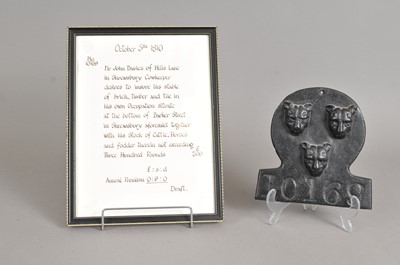 October 5th 1810
Mr John Davies of Hills Lane
in Shrewsbury Cowkeeper
desires to insure his stable
of brick, Timber and tile in
his own Occupation situate
at the bottom of Barker Street
in Shrewsbury aforesaid together
with his Stock of Cattle, Horses
and fodder therein not exceeding
Three Hundred Pounds £300
£ : s : d
Annual Premium 0 : 9 : 0
Draft.
10168